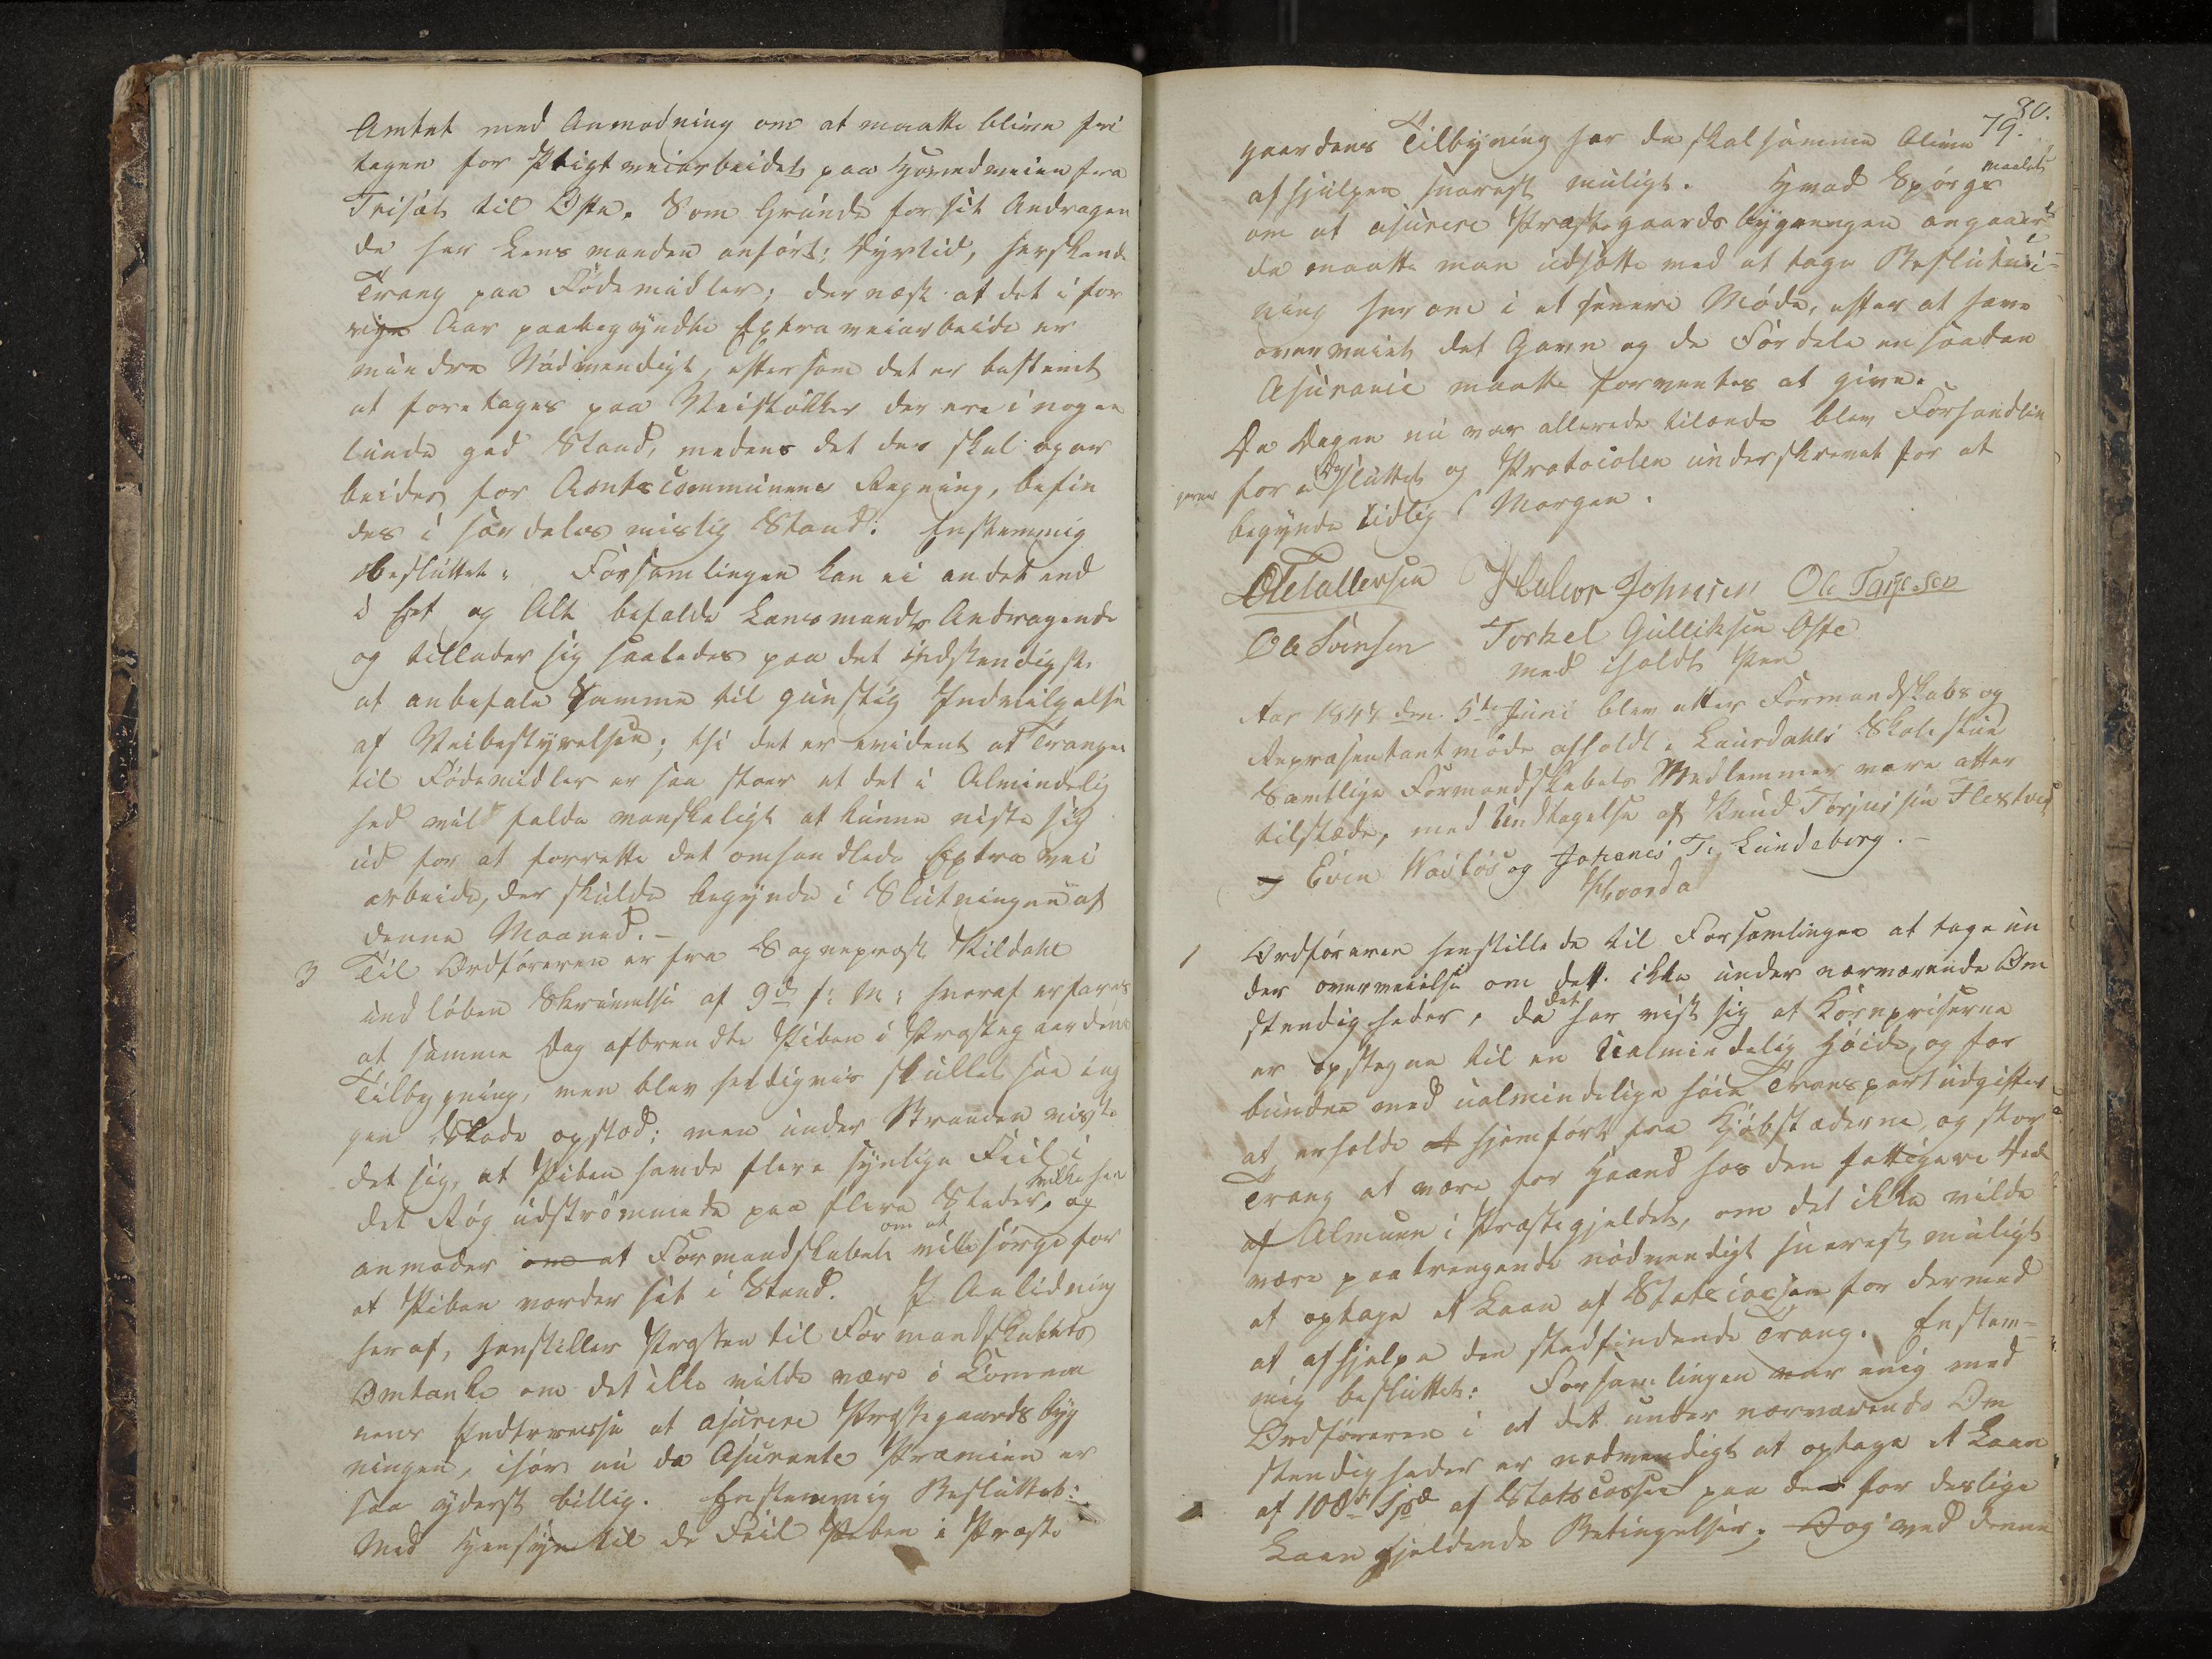 Amtet med Anmodning om at maatte blive fri
tagen for Pligtveiarbeidet paa Hovedveien fra
Trisæt til Ofte. Som Grunde for sit Andragen
de har Lensmanden anført; Dyrtid, herskende
Trang paa Fødemidler; dernæst at det i for
rige Aar paabegyndte Extraveiarbeide er
mindre Nødvendigt, eftersom det er bestemt
at foretages paa Veistøkker der ere i nogen
lunde god Stand, medens det der skal opar
beides for Amtscommunens Regning, befin
des i særdeles mislig Stand. Enstemmig
besluttet: Forsamlingen kan ei andet end
i Et og Alt befalde Lensmands Andragende
og tillader sig saaledes paa det indstendigste
at anbefale Samme til gunstig Indvilgelse
af Veibestyrelsen; thi det er evident at Trangen
til Fødemidler er saa stor at det i Almindelig
hed vil falde vanskeligt at kunne riste sig
ud for at forrette det omhandlede Extravei
arbeide, der skulde begynde i Slutningen af
denne Maaned. -
3 Til Ordføreren er fra Sognepræst Kildahl
indløben Skrivelse af 9d f: M: hvoraf erfares
at samme Dag afbrendte Piben i Præstegaardens
Tilbygning, men blev heldigvis slukket saa ing
gen Skade opstod; men under Branden viste
det sig, at Piben havde flere synlige Feil i
det Røg udstrømmede paa flere Steder, og
anmoder om at Formandskabet om at ville sørge for
at Piben vorder sat i Stand. I Anledning
heraf, henstiller Præsten til Formandskabets
Omtanke om det ikke vilde være i Commu
nens Interesse at asurere Præstegaardsbyg
ningen, især nu da Asurante Præmien er
saa yderst billig. Enstemmig Besluttet:
Med Hensyn til de Feil Piben i Præste
80.
79.
gaardens Tilbyning har da skal samme blive
afhjulpen snarest muligt. Hvad Spørgsmaalet
om at asurere Præstegaardsbygningen angaaer
da maatte man udsætte med at tage Beslutni-
ning herom i et senere Møde, efter at have
overveiet det Gavn og de Fordele en saadan
Asurance maatte forventes at give.
Da Dagen nu var allerede tilende blev Forhandlin
gerne for i Dag sluttet og Protocolen underskrevet for at
begynde tidlig i Morgen.
OTellefsen Halvor Johnsen Ole Tarjesen
Ole Svensen Torkel Gulliksen Ofte
med iholdt Pen
Aar 1847 den 5te Juni blev atter Formandskabs og
Repræsentantmøde afholdt i Laurdahls Skolestue
Samtlige Formandskabets Medlemmer vare atter
tilstæde, med Undtagelse af Knud Torjusen Flestveit
og Even Vasløs og Johanes T. Lundeborg. -
Hvorda
1 Ordføreren henstillede til Forsamlingen at tage un
der overveielse om dett ikke under nærværende Om
stendigheder, da det har vist sig at Kornpriserne
er opstegne til en Ualmindelig Høide, og for
bunden med ualmindelige høie Transportudgifter
at erholde et hjemført fra Kjøbstæderne, og stor
Trang at være for Haand hos den fattigere Del
af Almuen i Præstegjeldet, om det ikke vilde
være paatrengende nødvendigt snarest muligt
at optage et Laan af Statscassen for dermed
at afhjelpe den stedfindende Trang. Enstem-
mig besluttet: Forsamlingen var enig med
Ordføreren i at det under nærværende Om
stendigheder er nødvendigt at optage et Laan
af 1080 Spd af Statscassen paa de for deslige
Laan gjeldende Betingelser; Dog ved denne